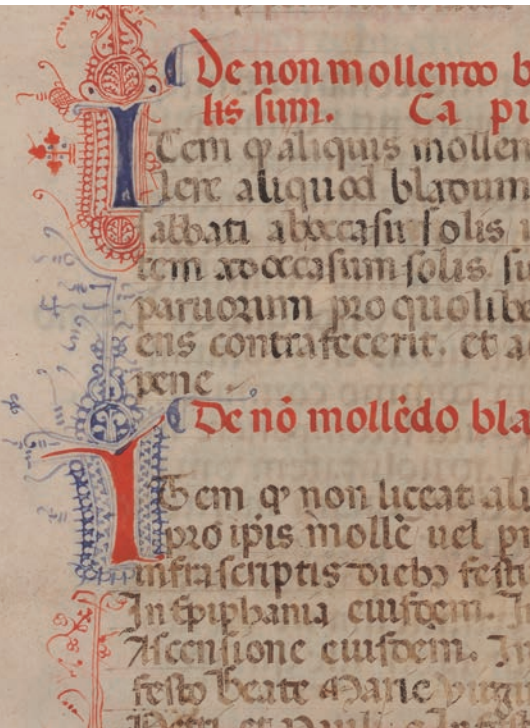 De non mollendo b
lis sum. Ca pr
Item ꝙ aliquis mollen
lere aliquod bladum
sabbati ab occasu solis
tem ad occasum solis. si
paruorum pro quolibe
ens contrafecerit. et a
pene.
De nō mollēdo bla
Item ꝙ non liceat al
pro ip̄is mollē uel p
infrascriptis diebꝫ festi
In Epiphania eiusdem. I
Ascensione eiusdem. In
festo beate Marie virgi
Petri et Pauli